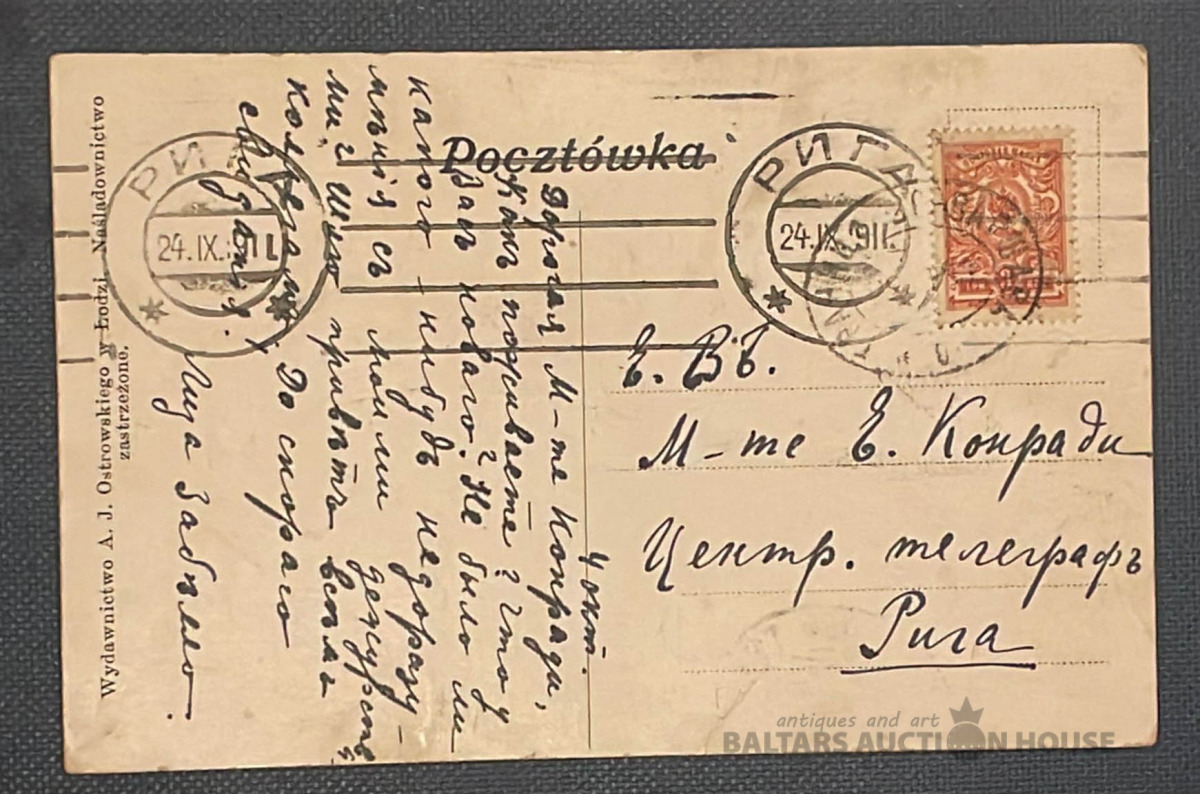 Pocztówka
Wydawnictwo A. J. Ostrowskiego w Łodzi. Naśladownictwo
zastrzeżone.
РИГА
24.IX.911
РИГА
24.IX.911.
4 окт.
Дорогая М-те Конради,
Какъ поживаете? Что у
Васъ новаго? Не было ли
какого-нибудь недоразу-
мѣнія съ моими дежурств
ми? Шлю привѣтъ всѣмъ
коллегамъ. До скораго
свиданія.
Лида Забѣло.
Е. ВБ.
М-те Е. Конради
Центр. телеграфъ
Рига
antiques and art
BALTARS AUCTION HOUSE